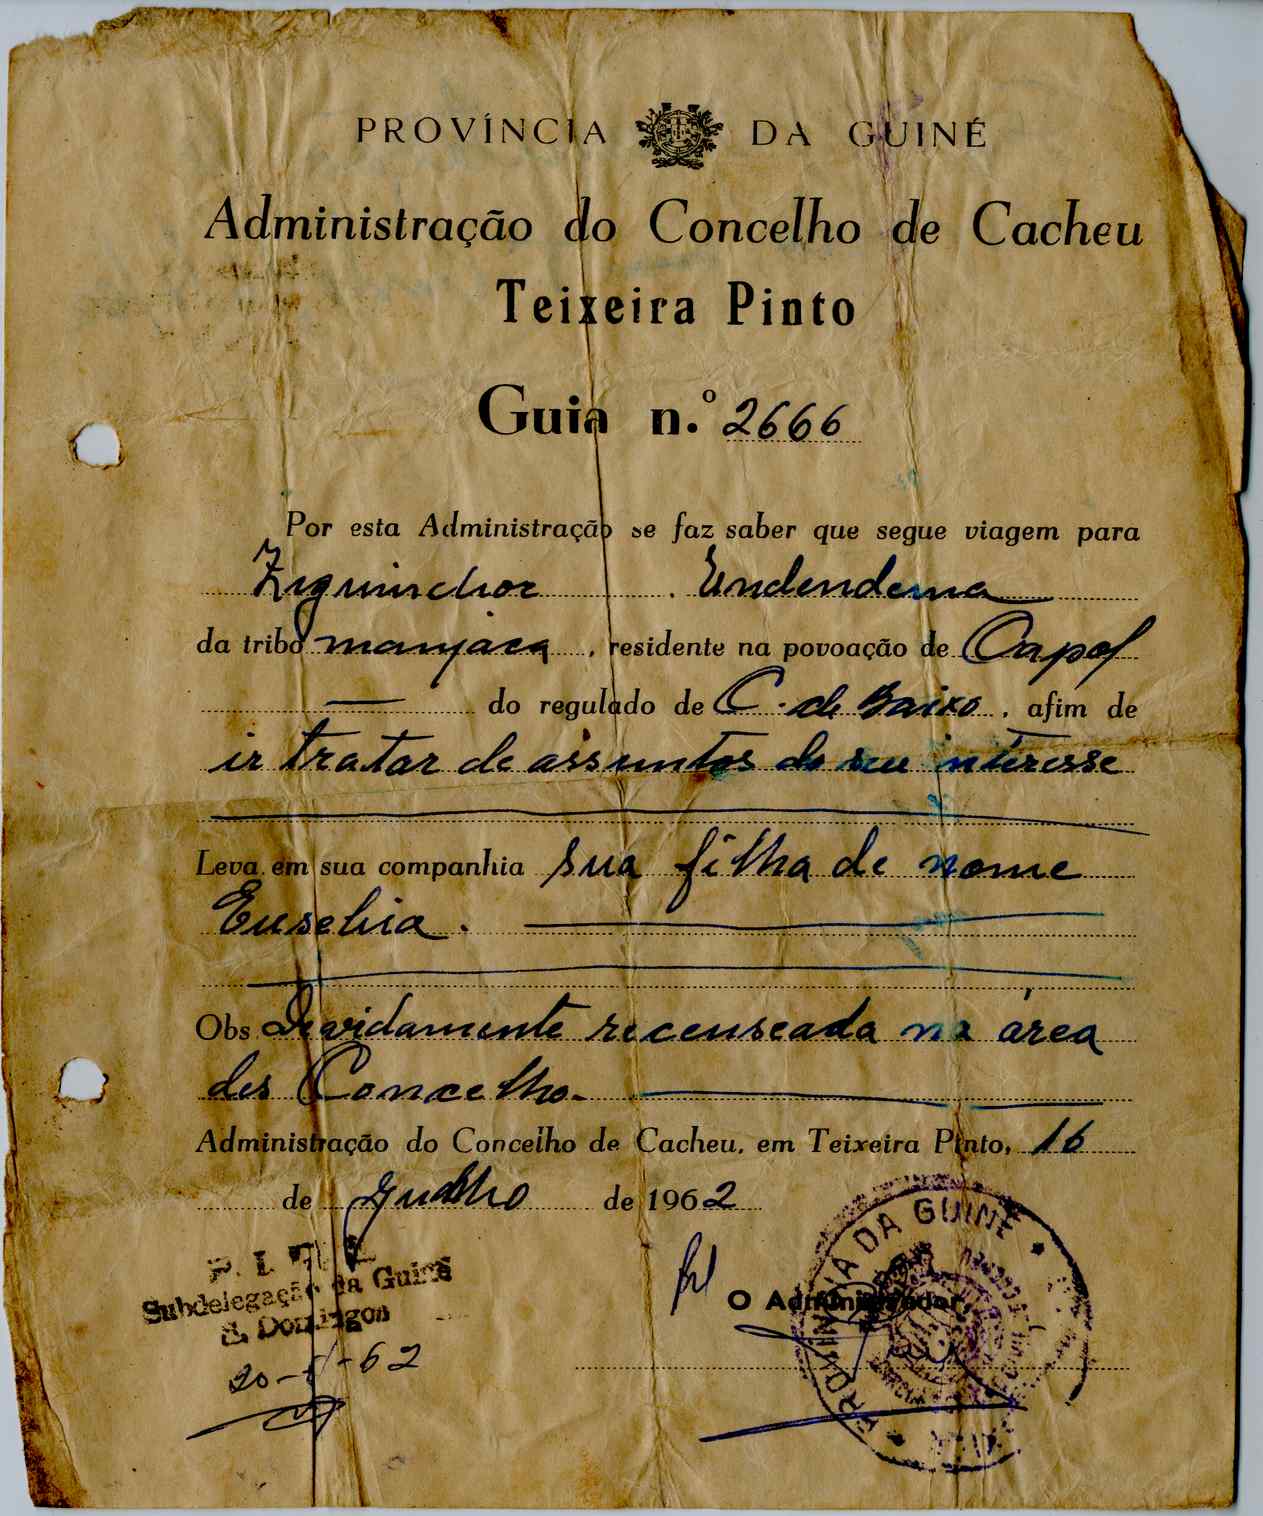 PROVÍNCIA DA GUINÉ
Administração do Concelho de Cacheu
Teixeira Pinto
Guia n.º 2666
Por esta Administração se faz saber que segue viagem para
Ziguinchor . Undendema
da tribo manjaca , residente na povoação de Capol
— do regulado de C. de Baixo , afim de
ir tratar de assuntos do seu interesse
Leva em sua companhia sua filha de nome
Eusebia.
Obs Devidamente recenseada na área
des Concelho.
Administração do Concelho de Cacheu, em Teixeira Pinto, 16
de Julho de 1962
P. I.
Subdelegação da Guiné
S. Domingos
20- -62
O Administrador,
PROVINCIA DA GUINÉ